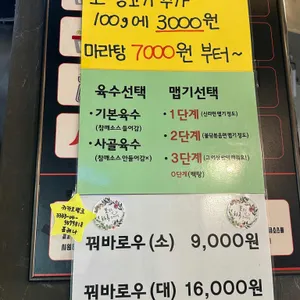 100g에 3000원
마라탕 7000원 부터~
육수선택
•기본육수
(참깨소스들어감)
•사골육수
(참깨소스안들어감x)
맵기선택
•1단계 (신라면맵기정도)
2단계 (불닭볶음면맵기정도)
3단계
0단계(백탕)
꿔바로우 (소) 9,000원
꿔바로우 (대) 16,000원